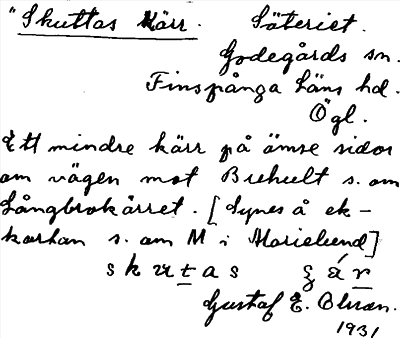 "Skuttas kärr. Säteriet.
Godegårds sn.
Finspånga läns hd.
Ögl.
Ett mindre kärr på ömse sidor
om vägen mot Buhult s. om
Långbrokärret. [Synes å ek-
kartan s. om M i Marielund]
skutas
Gustaf E. Olsson.
1931